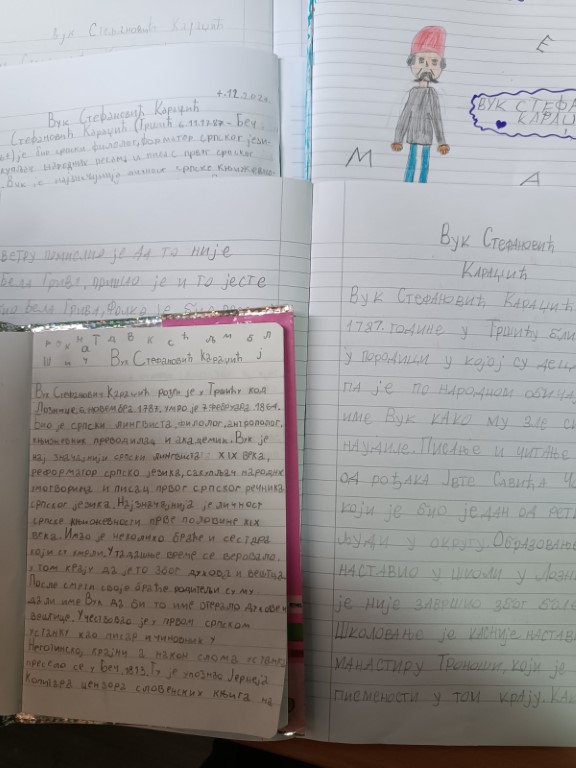 Вук Стефановић Караџић
4.12.202
Вук Стефановић Караџић
Стефановић Караџић (Тршић 6.11.1787 - Беч,
српски филолог, форматор српског јези-
народних песама и писац првог српског
Вук је најзначајнија личност српске књижевно
Е
ВУК СТЕФА
КАРАЏ
М
А
ветру помислио је да то није
Бела Грива, пришао је и то јесте
био бела Грива, Фолко је био
Вук Стефановић
Караџић
Вук Стефановић Караџић
1787. године у Тршићу бли
у породици у којој су деца
па је по народном обича
име Вук како му зле си
наудиле. Писање и читање
од рођака Јевте Савића Ча
који је био један од рет
људи у округу. Образовање
наставио у школи у Лозн
је није завршио због боле
Школовање је касније настав
манастиру Троноши, који је
писмености у том крају. Как
н т а в к с ћ љ м б л
Вук Стефановић Караџић ј
Вук Стефановић Караџић рођен је у Тршићу код
Лознице, 6. новембра 1787, умро је 7. фебруара 1864.
Био је српски лингвиста, филолог, антрополог,
књижевник преводилац и академик. Вук је
нај значајнији српски лингвиста XIX века,
реформатор српско језика, сакупљач народних
умотворина и писац првог српског речника
српског језика. Најзначајнија је личност
српске књижевности прве половине XIX
века. Имао је неколико браће и сестара
који су умрли. У тадашње време се веровало
у том крају да је то због духова и вештица
После смрти своје браће родитељи су му
дали име Вук да би то име отерало духове и
вештице. Учествовао је у првом српском
устанку као писар и чиновник у
Неготинској крајини а након слома устанка
преселио се у Беч, 1813. Ту је упознао Јернеја
Копитара цензора словенских књига на